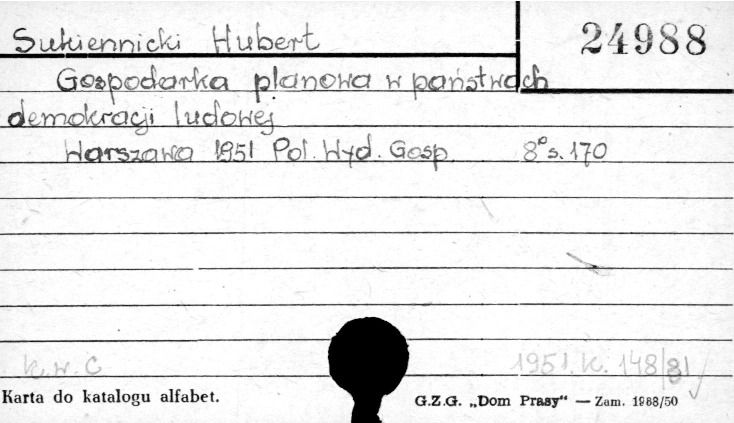 Sukiennicki Hubert
24988
Gospodarka planowa w państwach
demokracji ludowej
Warszawa 1951 Pol. Wyd. Gosp. 8° s. 170
k.w.c
1951. K. 148/81
Karta do katalogu alfabet.
G.Z.G. „Dom Prasy“ — Zam. 1968/50